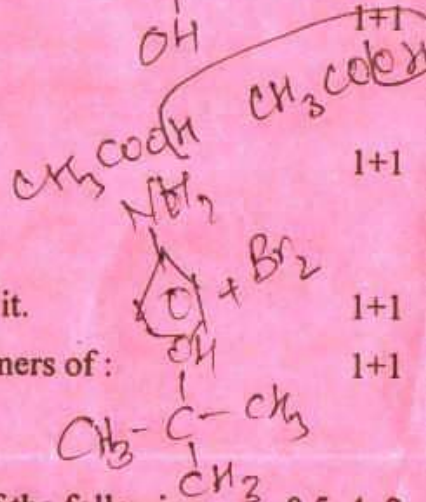 1+1
OH
CH3COOH
CH3COOH
1+1
NH2
+ Br2
it.
1+1
OH
ners of :
1+1
CH3-C-CH3
CH3